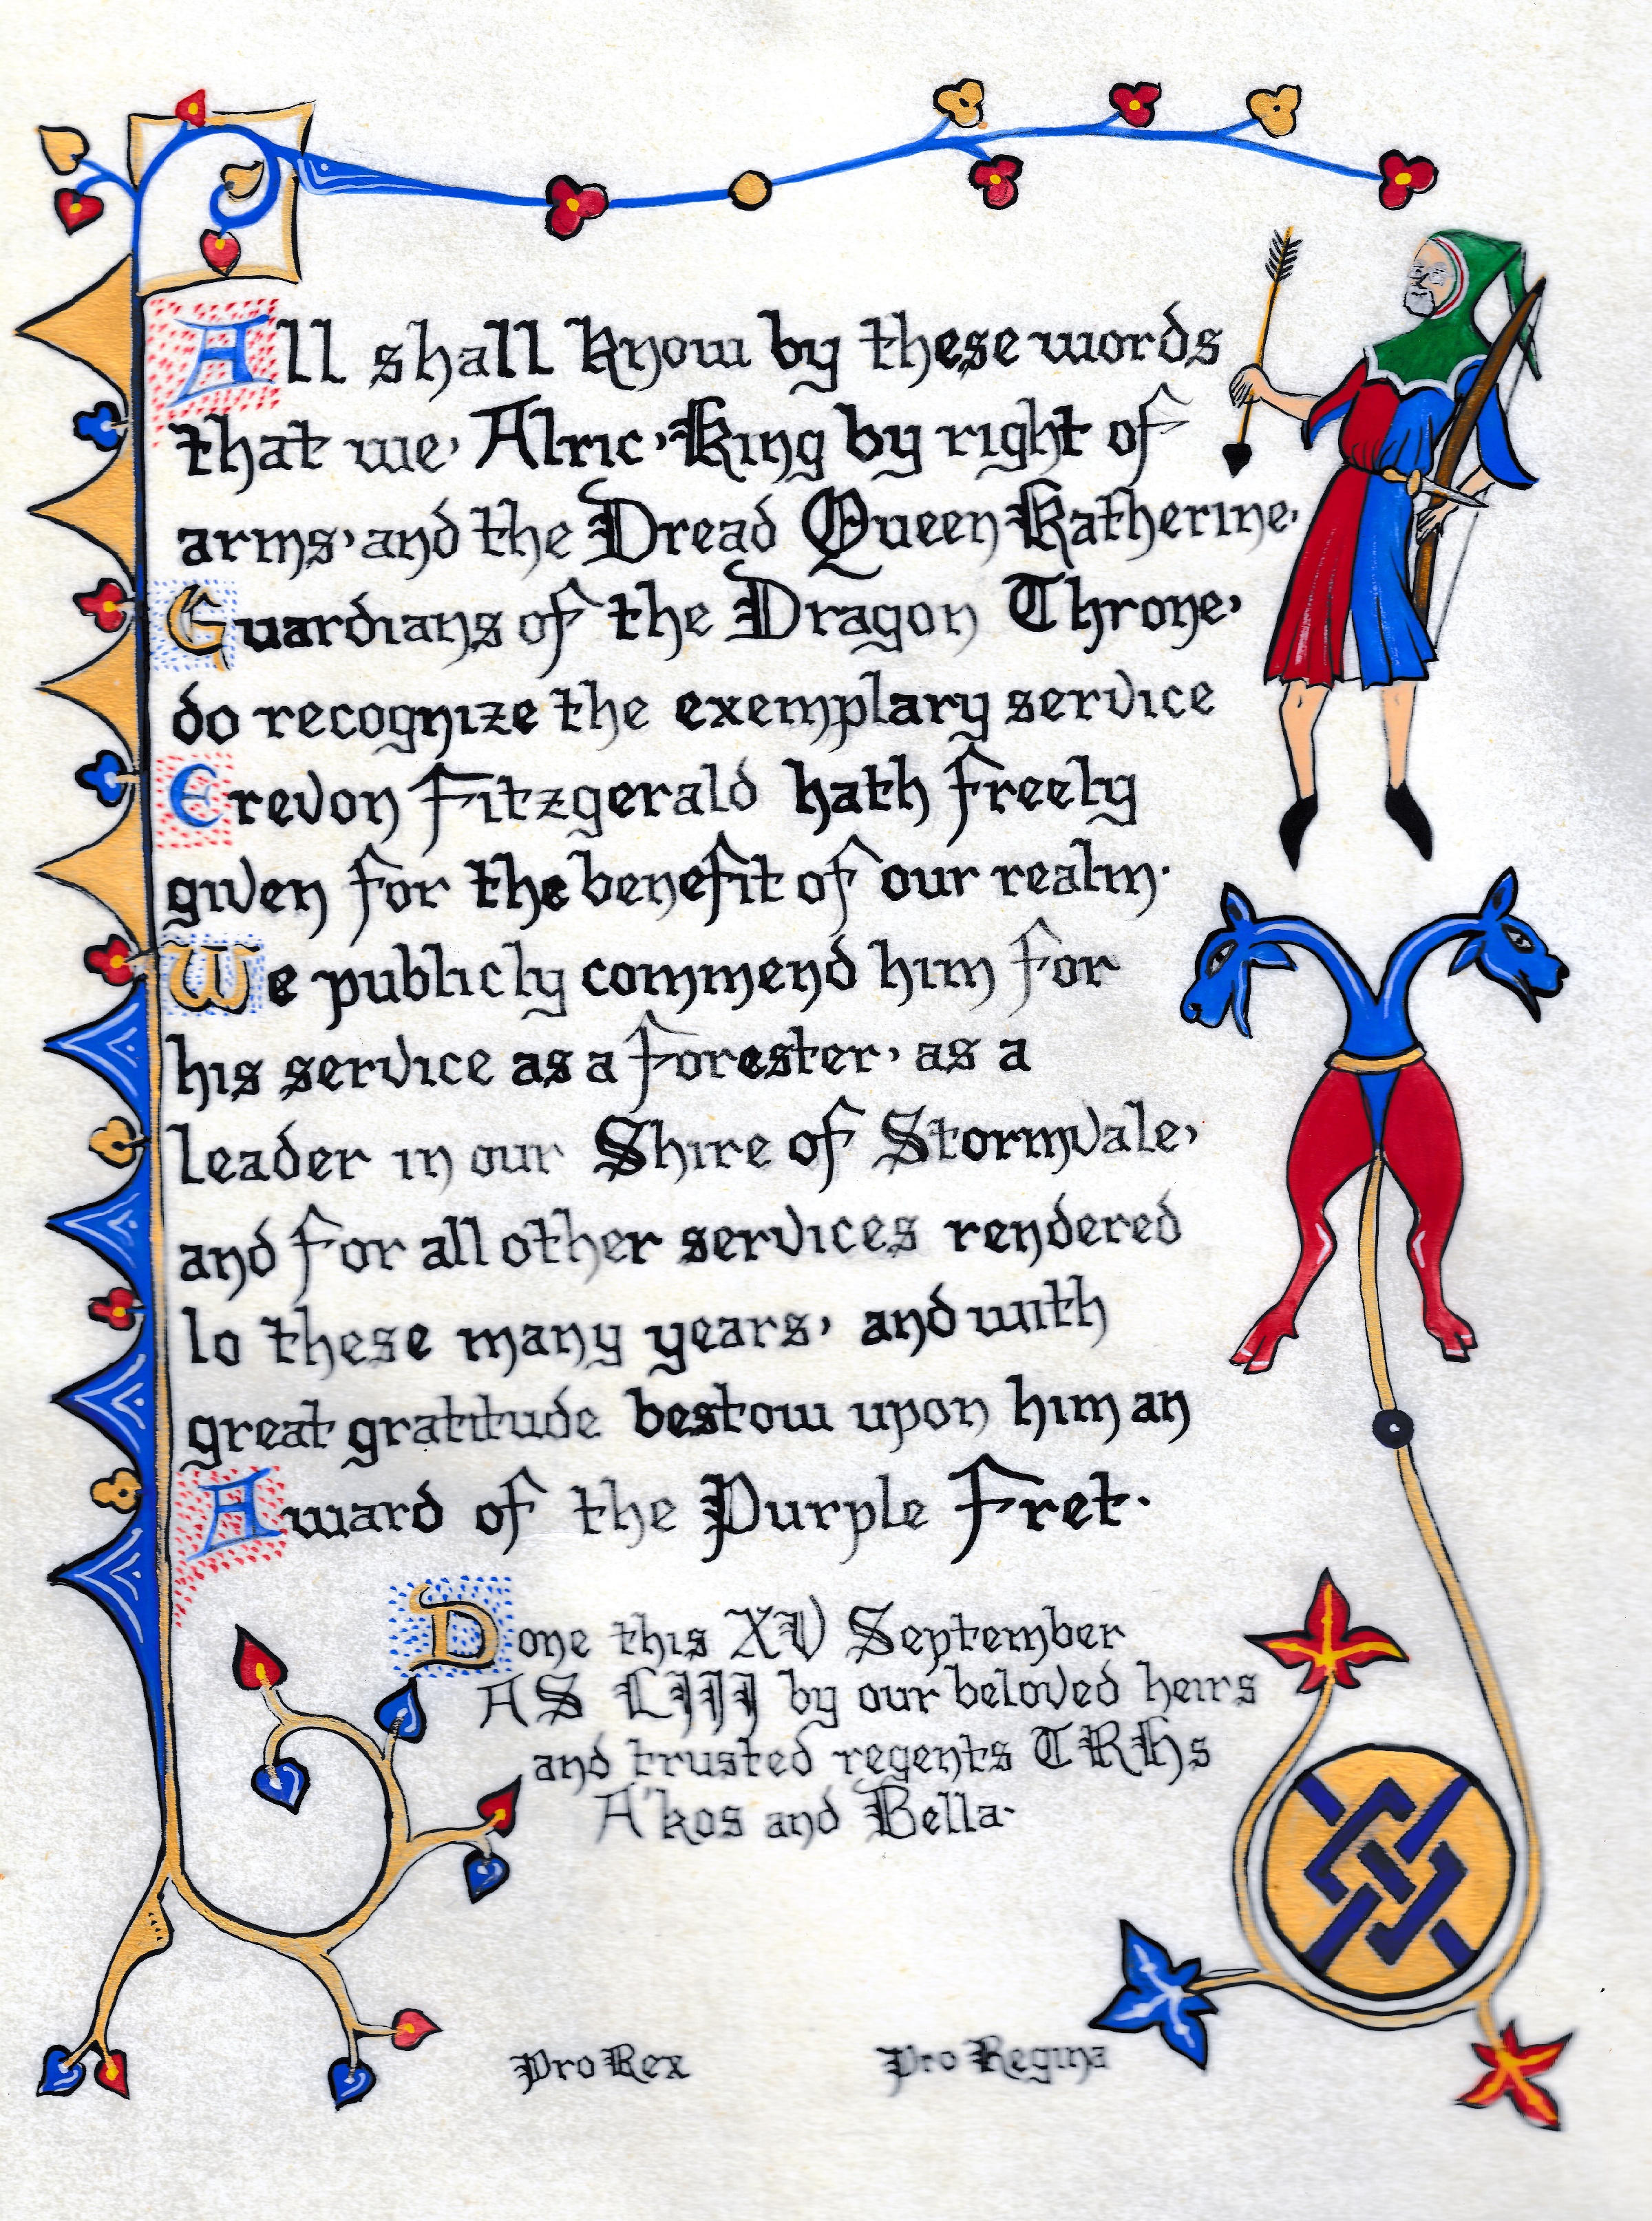 All shall know by these words
that we, Alric, King by right of
arms, and the Dread Queen Katherine,
Guardians of the Dragon Throne,
do recognize the exemplary service
Erevon Fitzgerald hath freely
given for the benefit of our realm.
We publicly commend him for
his service as a forester, as a
leader in our Shire of Stormvale,
and for all other services rendered
lo these many years, and with
great gratitude bestow upon him an
Award of the Purple Fret.
Done this XV September
AS LIII by our beloved heirs
and trusted regents TRHs
A'kos and Bella.
Pro Rex Pro Regina